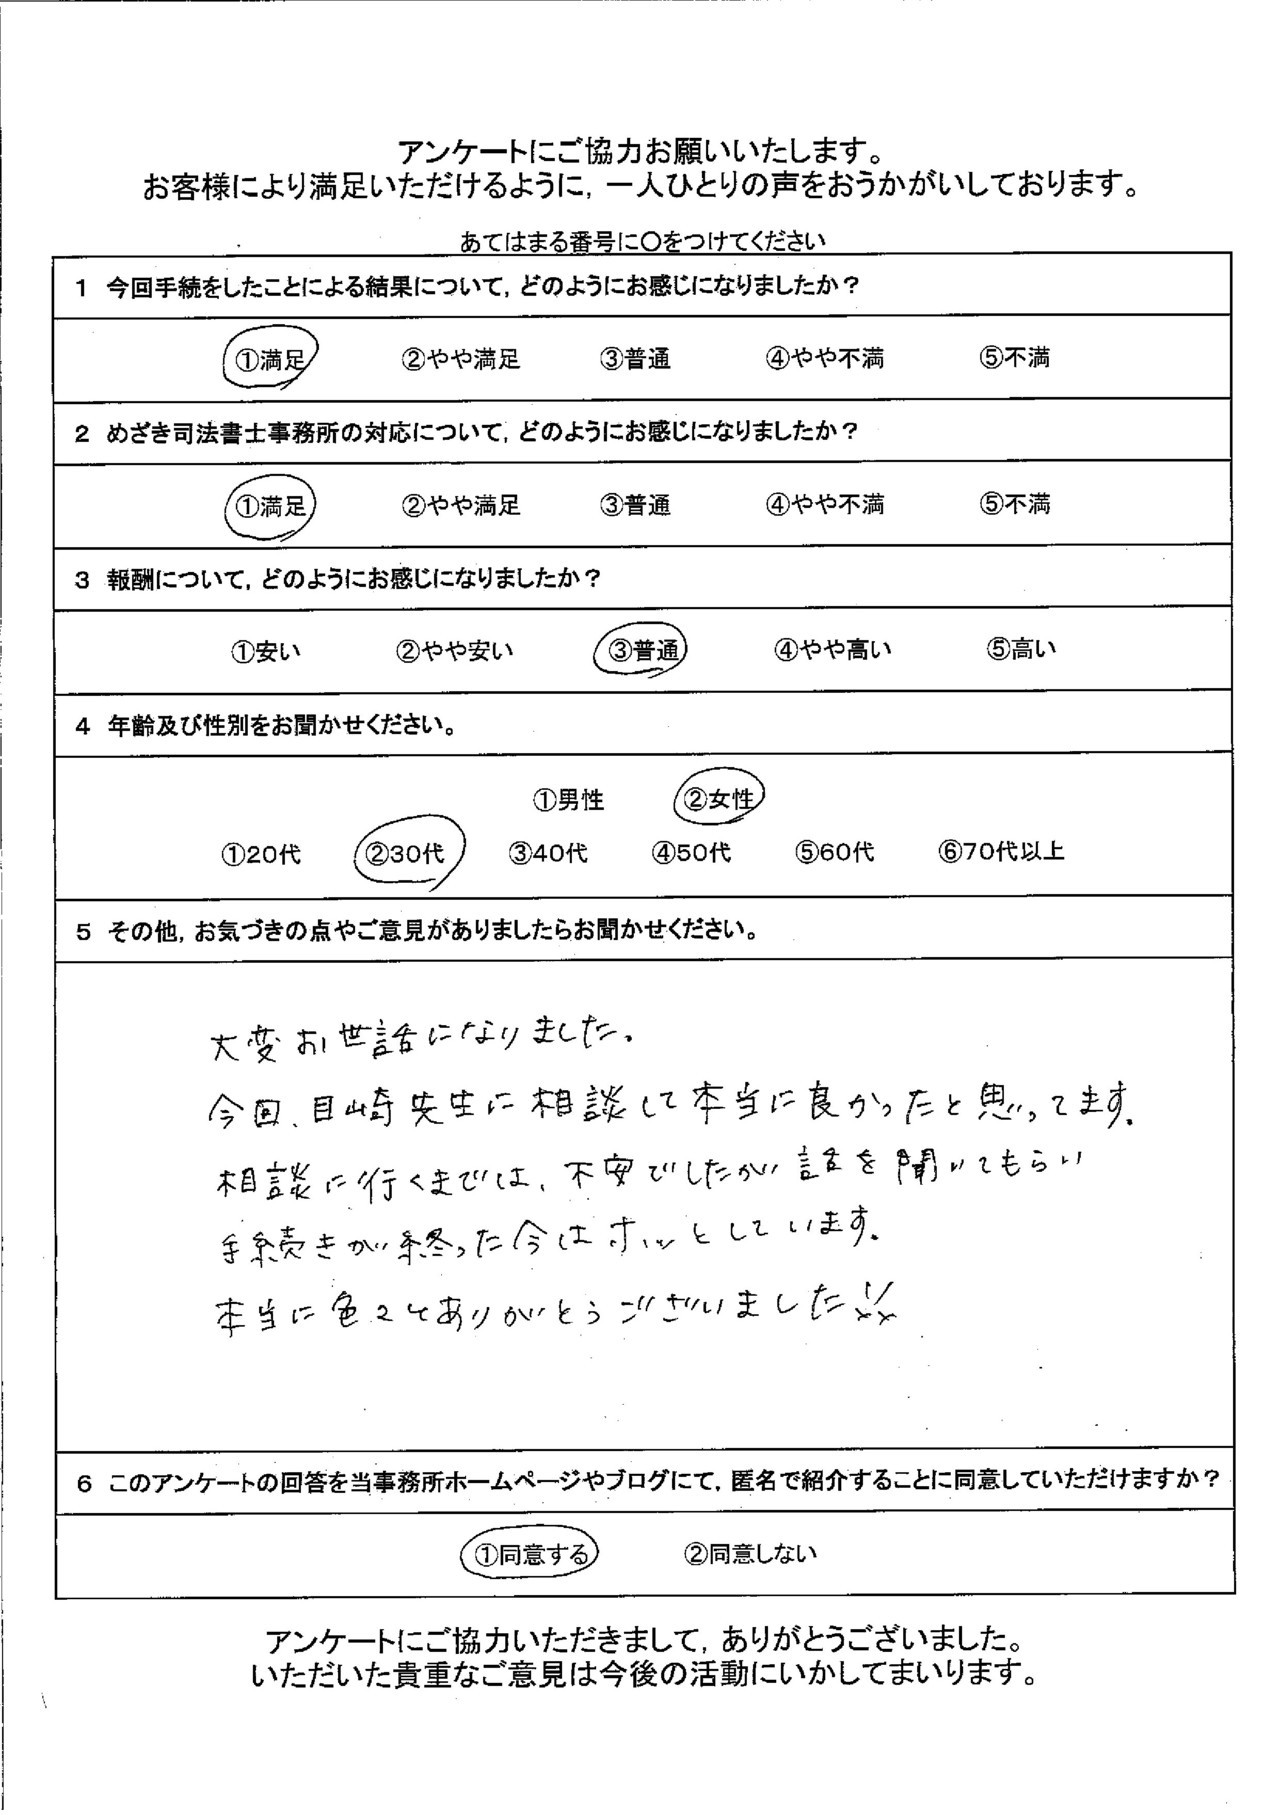 アンケートにご協力お願いいたします。
お客様により満足いただけるように，一人ひとりの声をおうかがいしております。
あてはまる番号に〇をつけてください
1 今回手続をしたことによる結果について，どのようにお感じになりましたか？
①満足 ②やや満足 ③普通 ④やや不満 ⑤不満
2 めざき司法書士事務所の対応について，どのようにお感じになりましたか？
①満足 ②やや満足 ③普通 ④やや不満 ⑤不満
3 報酬について，どのようにお感じになりましたか？
①安い ②やや安い ③普通 ④やや高い ⑤高い
4 年齢及び性別をお聞かせください。
①男性 ②女性
①20代 ②30代 ③40代 ④50代 ⑤60代 ⑥70代以上
5 その他，お気づきの点やご意見がありましたらお聞かせください。
大変お世話になりました。
今回、目崎先生に相談して本当に良かったと思ってます。
相談に行くまでは、不安でしたが話を聞いてもらい
手続きが終った今はホッとしています。
本当に色々とありがとうございました!!
6 このアンケートの回答を当事務所ホームページやブログにて，匿名で紹介することに同意していただけますか？
①同意する ②同意しない
アンケートにご協力いただきまして，ありがとうございました。
いただいた貴重なご意見は今後の活動にいかしてまいります。